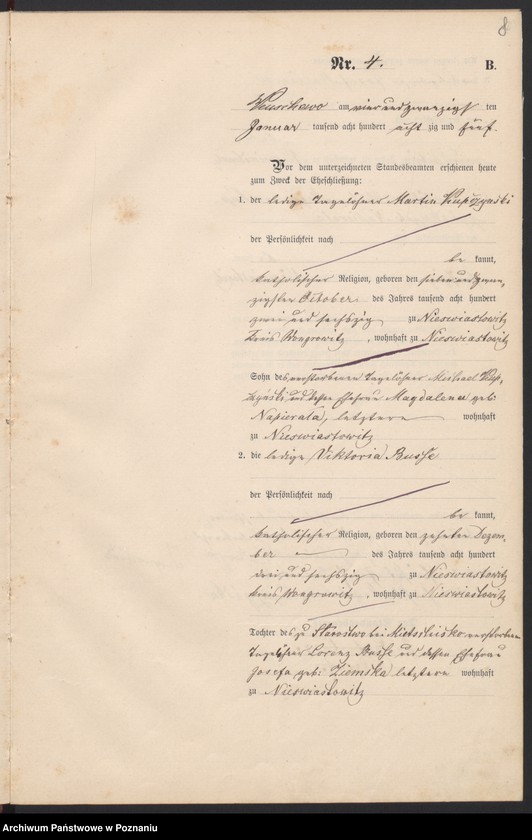 8
Nr. 4. B.
am vier und zwanzigst ten
Januar tausend acht hundert acht zig und fünf.
Vor dem unterzeichneten Standesbeamten erschienen heute
zum Zweck der Eheschließung:
1. der ledige Tagelöhner Martin
der Persönlichkeit nach
be kannt,
katholischer Religion, geboren den sieben und zwan
zigsten October des Jahres tausend acht hundert
zwei und sechszig zu Nieswiastowitz
Kreis Wongrowitz, wohnhaft zu Nieswiastowitz
Sohn des verstorbenen Tagelöhner Michael
und dessen Ehefrau Magdalena geb:
Napierala, letztere wohnhaft
zu Nieswiastowitz
2. die ledige Viktoria Busse
der Persönlichkeit nach
be kannt,
katholischer Religion, geboren den zehnten Dezem
ber des Jahres tausend acht hundert
drei und sechszig zu Nieswiastowitz
Kreis Wongrowitz, wohnhaft zu Nieswiastowitz
Tochter des zu Starostwo bei Mietschisko verstorbenen
Tagelöhner Lorenz Busse und dessen Ehefrau
Josefa geb: Ziemska letztere wohnhaft
zu Nieswiastowitz
Archiwum Państwowe w Poznaniu